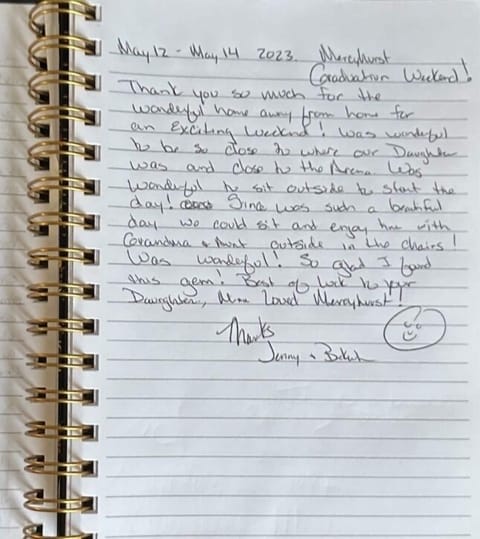 May 12 - May 14 2023. Mercyhurst
Graduation Weekend!
Thank you so much for the
wonderful home away from home for
an Exciting Weekend! Was wonderful
to be so close to where our Daughter
was and close to the Arena. Was
wonderful to sit outside to start the
day! Since was such a beautiful
day we could sit and enjoy time with
Grandma + Aunt outside in the chairs!
Was wonderful! So glad I found
this gem! Best of luck to your
Daughter, Mine Loved Mercyhurst!
Thanks
Jenny +